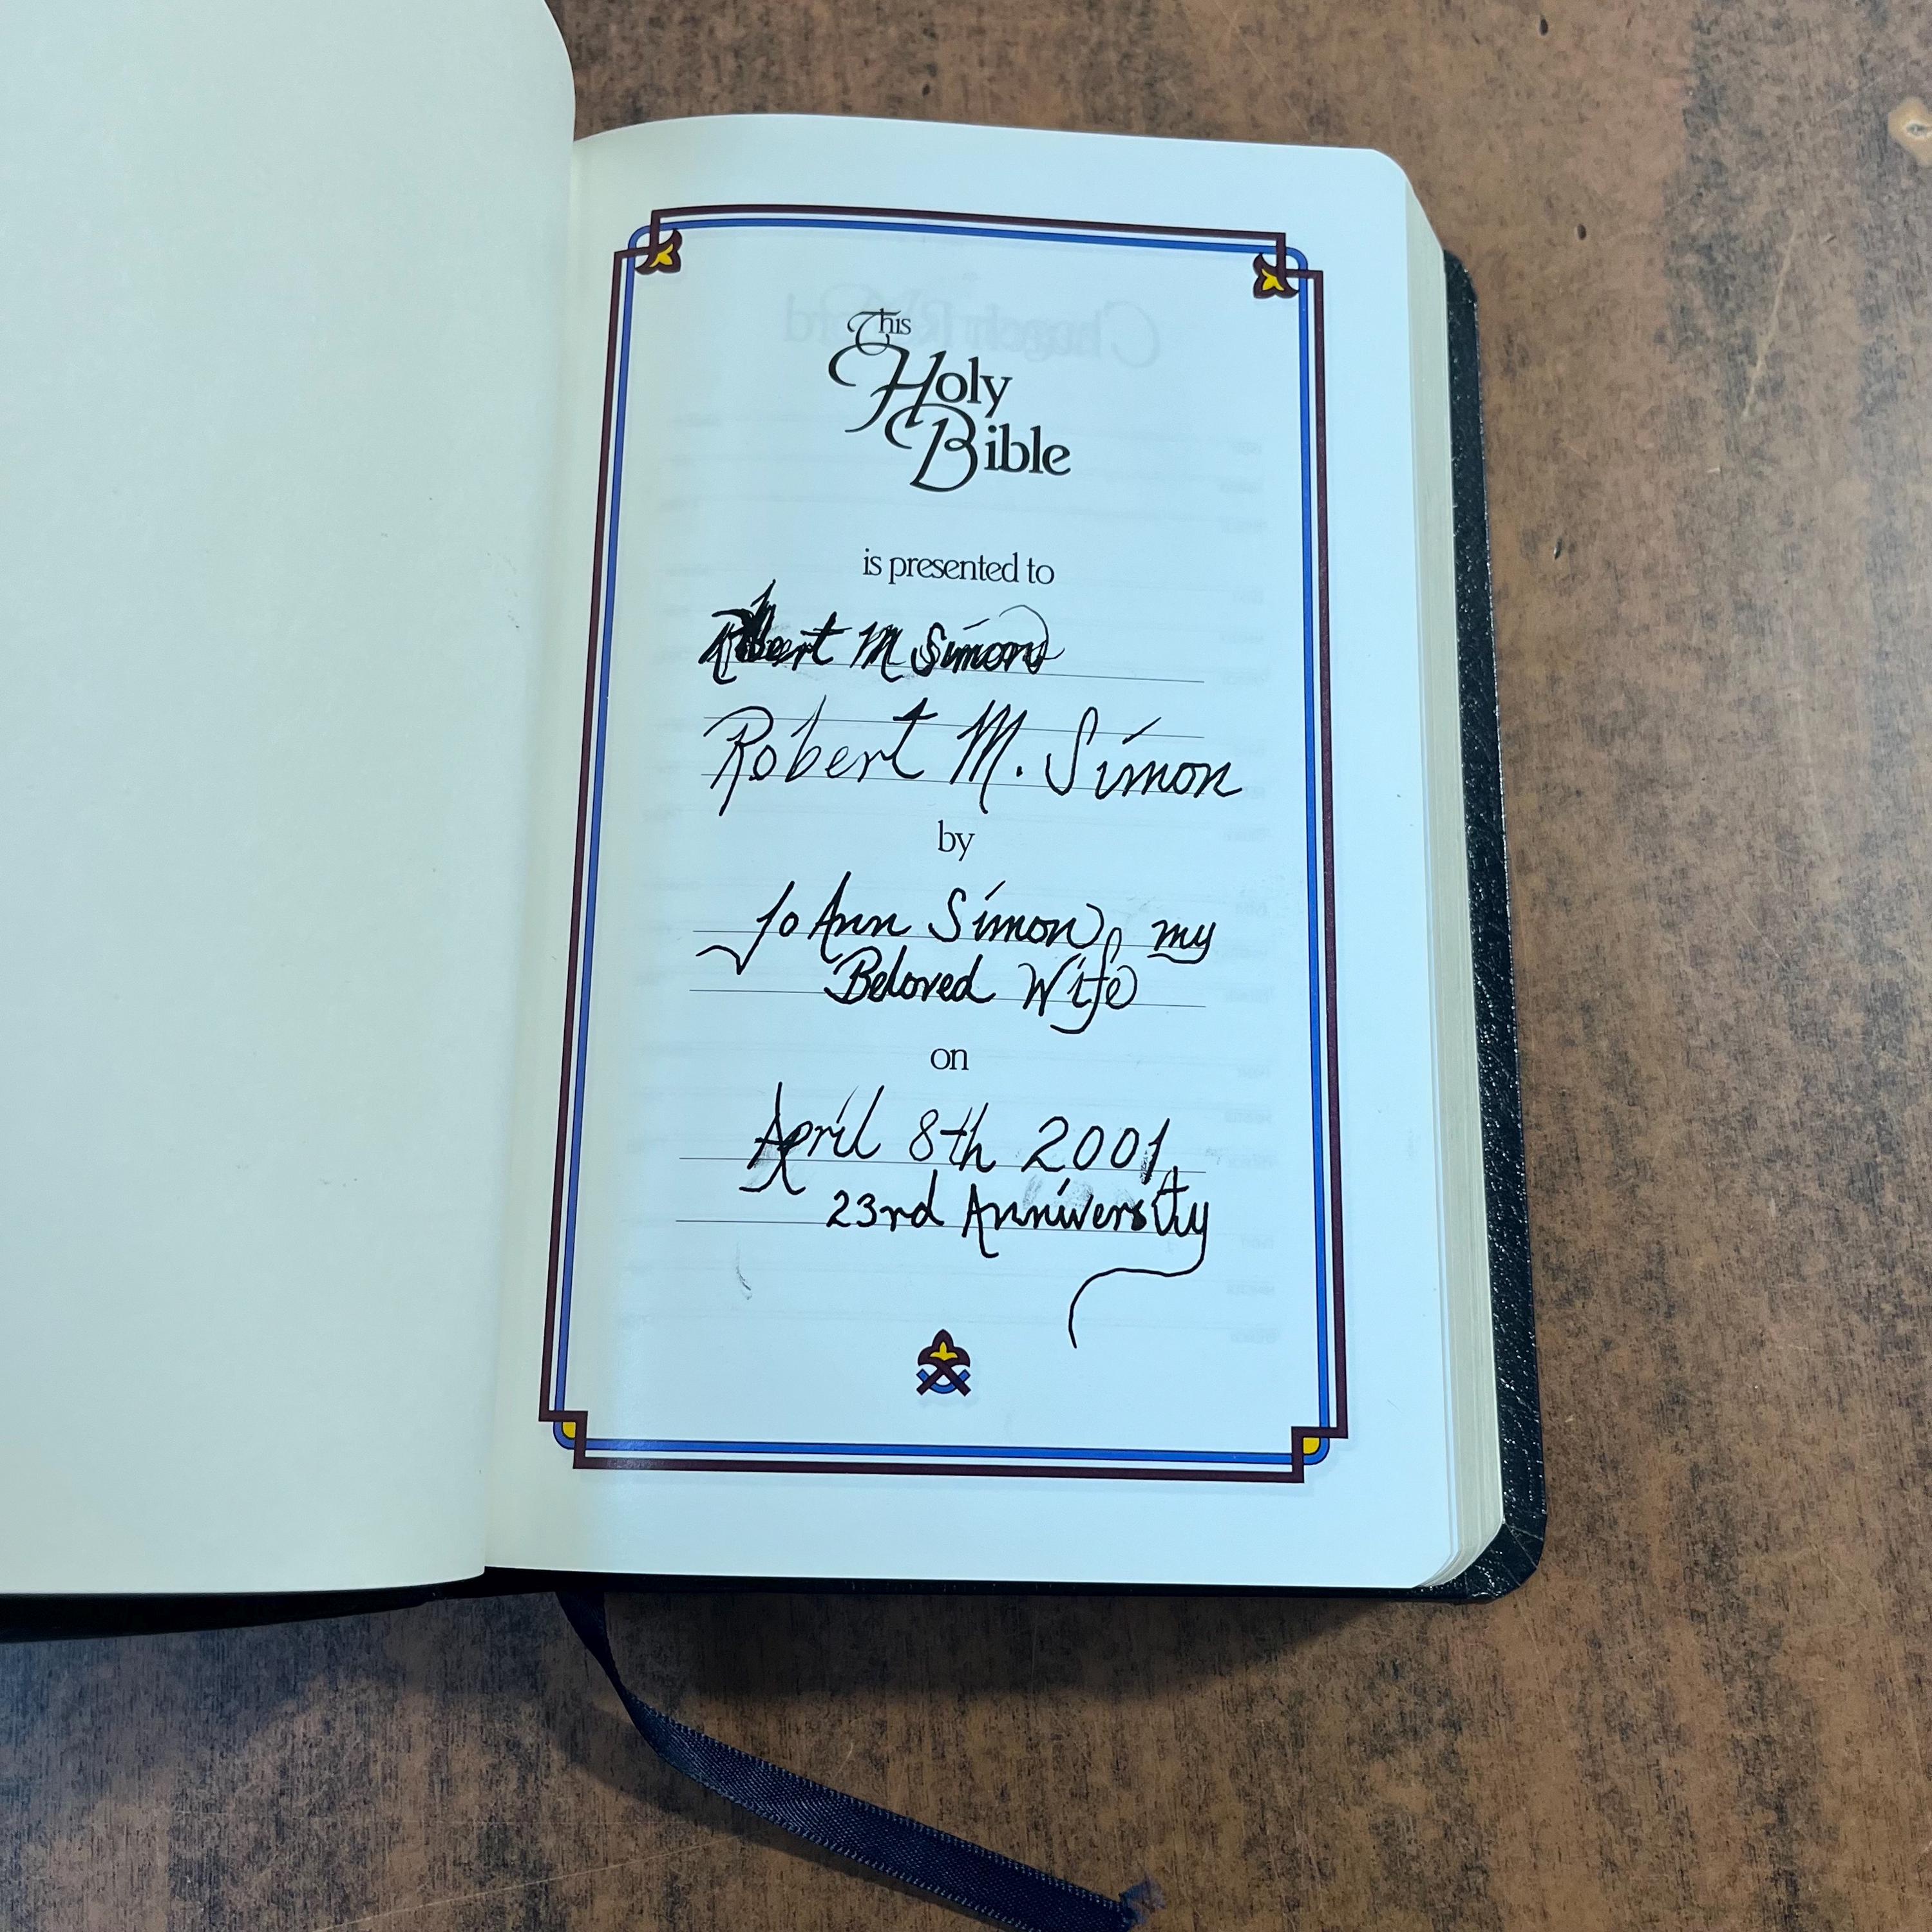 This
Holy
Bible
is presented to
Robert M Simon
Robert M. Simon
by
Jo Ann Simon, my
Beloved Wife
on
April 8th 2001,
23rd Anniversity